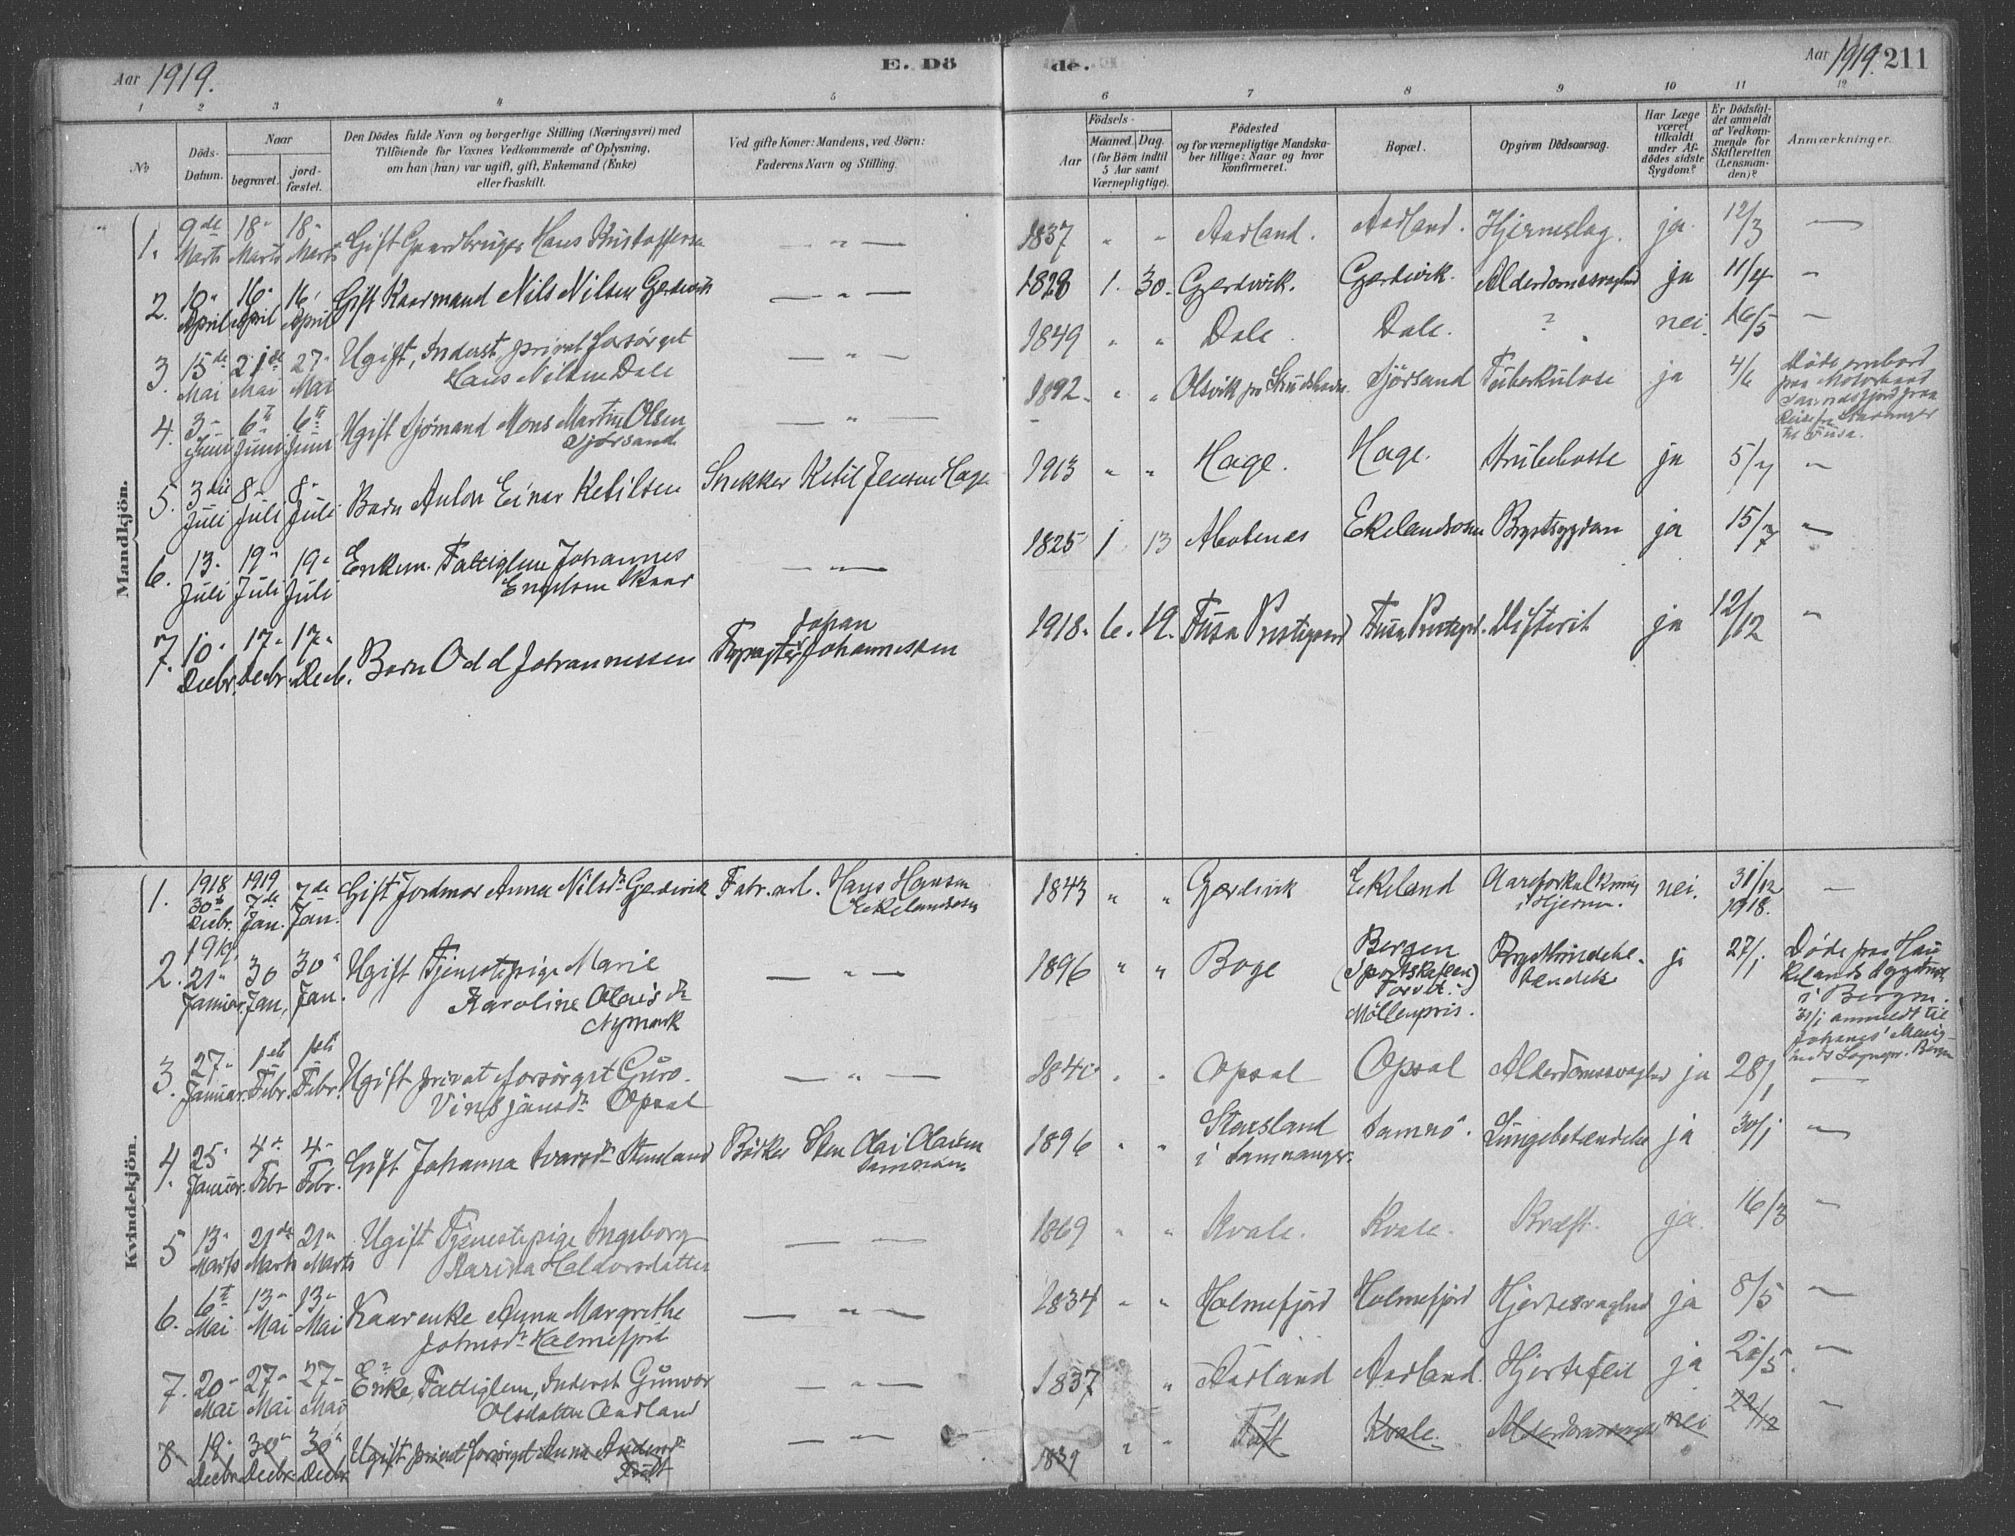 Aar 1919.
E. Dö
de.
Aar 1919. 211
1 2 3 4 5 6 7 8 9 10 11 12
No
Döds-Datum.
Naar
begravet.
jord-fæstet.
Den Dödes fulde Navn og borgerlige Stilling (Næringsvei) med
Tilföiende for Voxnes Vedkommende af Oplysning,
om han (hun) var ugift, gift, Enkemand (Enke)
eller fraskilt.
Ved gifte Koner: Mandens, ved Börn:
Faderens Navn og Stilling.
Födsels-
Aar
Maaned. Dag.
(for Börn indtil
5 Aar samt
Værnepligtige).
Födested
og for værnepligtige Mandska-
ber tillige: Naar og hvor
konfirmeret.
Bopæl.
Opgiven Dödsaarsag.
Har Læge
været
tilkaldt
under Af-
dödes sidste
Sygdom?
Er Dödsfal-
det anmeldt
af Vedkom-
mende for
Skifteretten
(Lensman-
den)?
Anmærkninger.
Mandkjön.
1. 9de Marts 18" Marts 18" Marts Gift Gaardbruger Hans Kristoffersen — " — 1837 " " Aadland. Aadland. Hjerneslag. ja 12/3 —
2. 10" April 16" April 16" April Gift Kaarmand Nils Nilsen Gjerdevik — " — 1828 1. 30. Gjerdevik. Gjerdevik. Alderdomssvaghed ja 11/4 —
3. 15de Mai 21de Mai 27" Mai Ugift, Inderst, privat forsørget
Hans Nilsen Dale — " — 1849 " " Dale. Dale. ? nei. 16/5 —
4. 3" Juni 6te Juni 6te Juni Ugift Sjømand Mons Martin Olsen
Sjørsand — " — 1892. " " Olsvik Sjørsand Tuberkulose ja 4/6 Døde ombord
paa Motorbaad
paa
Reise fra Stavanger
til Fusa.
5. 3die Juli 8" Juli 8" Juli Barn Anton Einar Ketilsen Snekker Ketil Jensen Hage 1913 " " Hage. Hage. Strubehoste ja 5/7 —
6. 13" Juli 19" Juli 19" Juli Enkem. Fattiglem Johannes
Engelsen Skaar — " — 1825 1 13 Ekelandsosen Brystsygdom ja 15/7 —
7. 10" Decbr. 17" Decbr. 17" Decb. Barn Odd Johannessen Johan
Johannessen 1918. 6. 19. Fusa Prestegaard Fusa Prestegd. Difterit ja 12/12 "
Kvindekjön.
1. 1918 30te Decbr. 1919 7de Jan. 7de Jan. Gift Jordmor Anna Nilsdr Gjerdevik Fabr. arb. Hans Hansen
Ekelandsosen 1843 " " Gjerdevik Ekeland Aareforkalkning
i Hjernen. nei. 31/12 1918. —
2. 1919 21" Januar. 30 Jan. 30" Jan. Ugift Tjenestepige Marie
Karoline Olaisdr
Nymark — " — 1896 " " Boge Bergen
(Sportskafeen)
Torvet.
Møllenpris. Brysthindebe-
tændelse ja 27/1 Døde paa Hau-
kelands Sygehus
i Bergen.
31/1 anmeldt til
Johannes' Menig-
heds Sognepr. Bergen
3. 27" Januar. 1ste Febr. 1ste Febr. Ugift privat forsørget Guro
Vinsjansdr Opsal — " — 1840 " " Opsal Opsal Alderdomssvaghed ja 28/1 —
4. 25" Januar. 4de Febr. 4" Febr. Gift Johanna Ivarsdr Stensland Bødker Sten Olai Olaisen
Samnøen 1896 " " Stensland
i Samnanger. Samnø. Lungebetændelse ja 30/1 —
5 13" Marts 21de Marts 21" Marts Ugift Tjenestepige Ingeborg
Karina Haldorsdatter — — 1869 " " Kvale. Kvale. Kræft. ja. 16/3 —
6. 6te Mai 13" Mai 13" Mai Kaarenke Anna Margrethe
Johnsdr Holmefjord — " — 1834 " " Holmefjord Holmefjord Hjertesvaghed ja 8/5 —
7. 20" Mai 27" Mai 27" Mai Enke, Fattiglem, Inderst Gunvor
Olsdatter Aadland — " — 1837 " Aadland Aadland. Hjertefeil ja 20/5. —
8 19" Decbr 30" Decbr 30" Decbr Ugift privat forsørget Anna Andersdr
Tuft — " — 1839 " " Tuft Kvale. Alderdomssvaghed nei 22/12 —